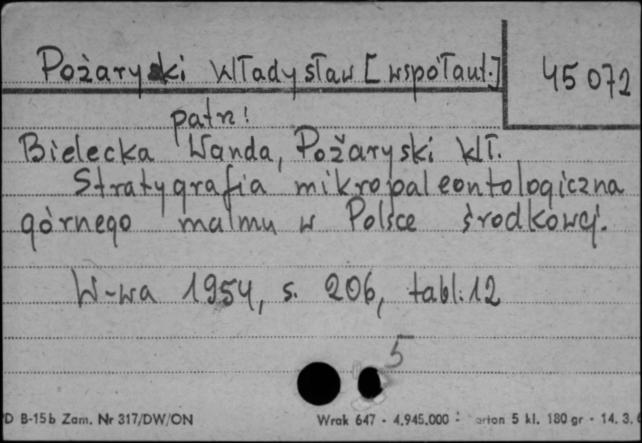 Pożaryski Władysław [współaut.] 45 072
patrz!
Bielecka Wanda, Pożaryski Wł.
Stratygrafia mikropaleontologiczna
górnego malmu w Polsce środkowej.
W-wa 1954, s. 206, tabl. 12
5
D B-15b Zam. Nr 317/DW/ON Wrak 647 - 4.945.000 5 kl. 180 gr - 14. 3.